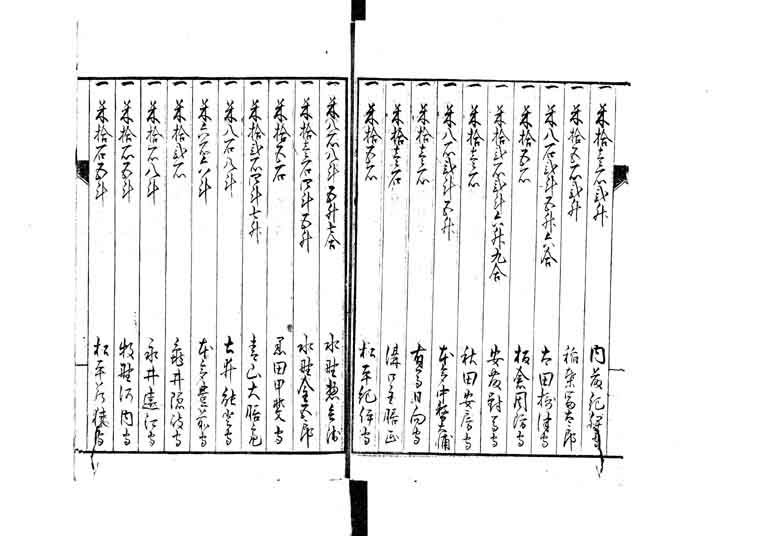 一 米拾壱石弐升 内藤紀伊守
一 米拾五石弐升 稲葉富太郎
一 米八石弐斗五升六合 太田摂津守
一 米拾五石 板倉周防守
一 米拾弐石弐斗六升九合 安藤対馬守
一 米拾壱石 秋田安房守
一 米八石弐斗五升 本多中務大輔
一 米拾壱石 有馬日向守
一 米拾壱石 溝口主膳正
一 米拾五石 松平紀伊守
一 米八石八斗五升七合 水野
一 米拾壱石四斗五升 水野金五郎
一 米拾五石 黒田甲斐守
一 米拾弐石四斗七升 青山大膳亮
一 米八石八斗 土井能登守
一 米六石六斗 本多豊前守
一 米拾弐石 亀井隠岐守
一 米拾石八斗 永井遠江守
一 米拾石五斗 牧野河内守
一 米拾石五斗 松平若狭守